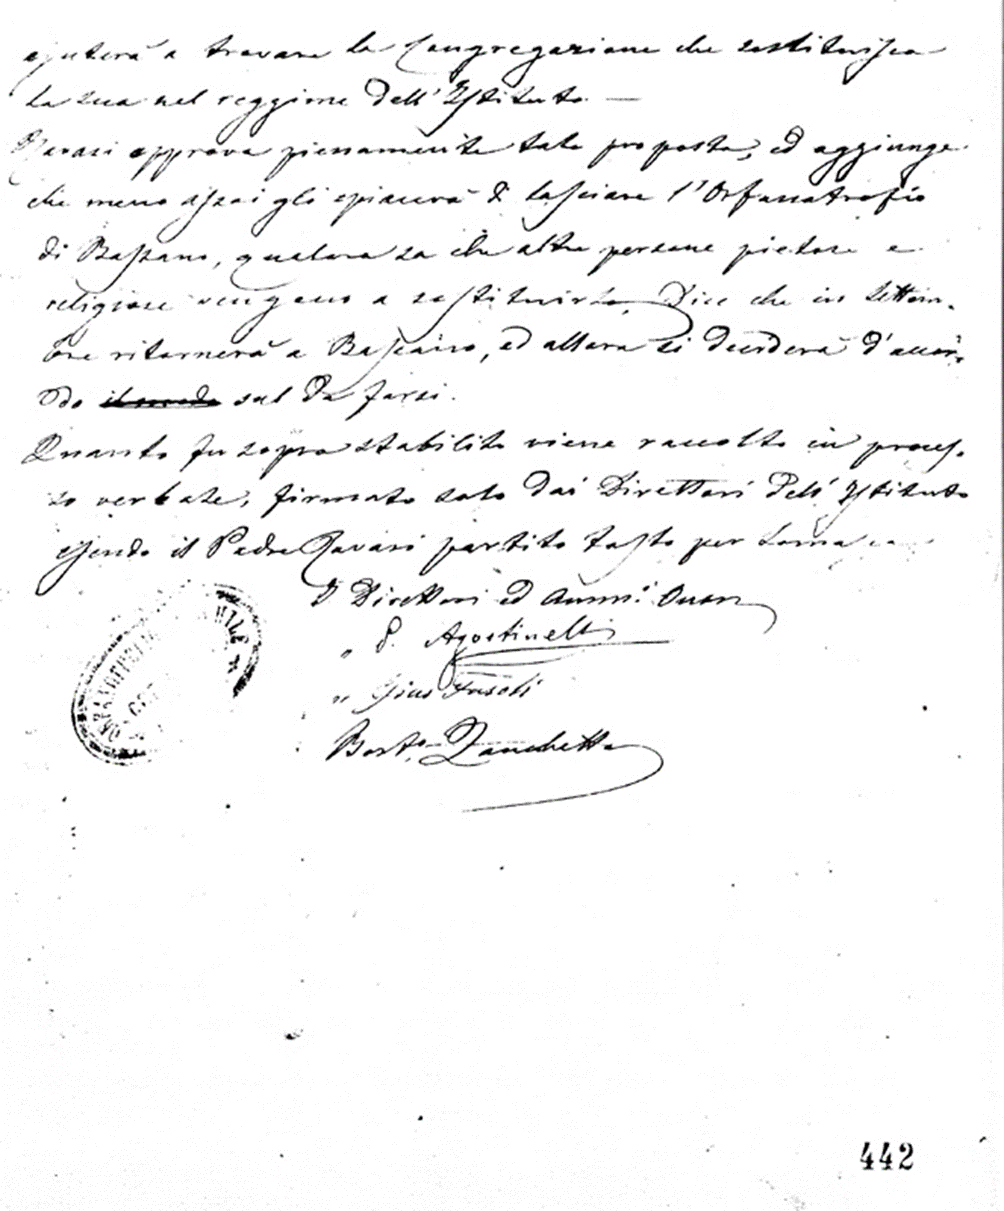 ajuterà a trovare la Congregazione che sostituisca
la sua nel reggime dell'Istituto. —
Ravasi approva pienamente tale proposta, ed aggiunge
che meno assai gli spiacerà di lasciare l'Orfanatrofio
di Bassano, qualora sa che altre persone pietose e
religiose vengano a sostituirlo. Dice che in Settem-
bre ritornerà a Bassano, ed allora si deciderà d'accor-
do il modo sul da farsi.
Quanto fu sopra stabilito viene raccolto in proces-
so verbale, firmato solo dai Direttori dell'Istituto
essendo il Padre Ravasi partito tosto per
I Direttori ed Ammi. Onor
" P. Agostinelli
" Gius
Borto. Zanchetta
442